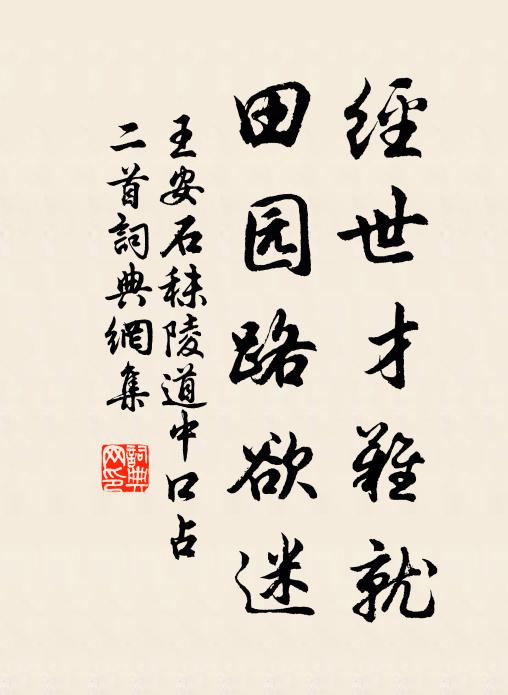 經世才難就
田园路欲迷
王安石秣陵道中口占
二首詞典網集
詞典
网印